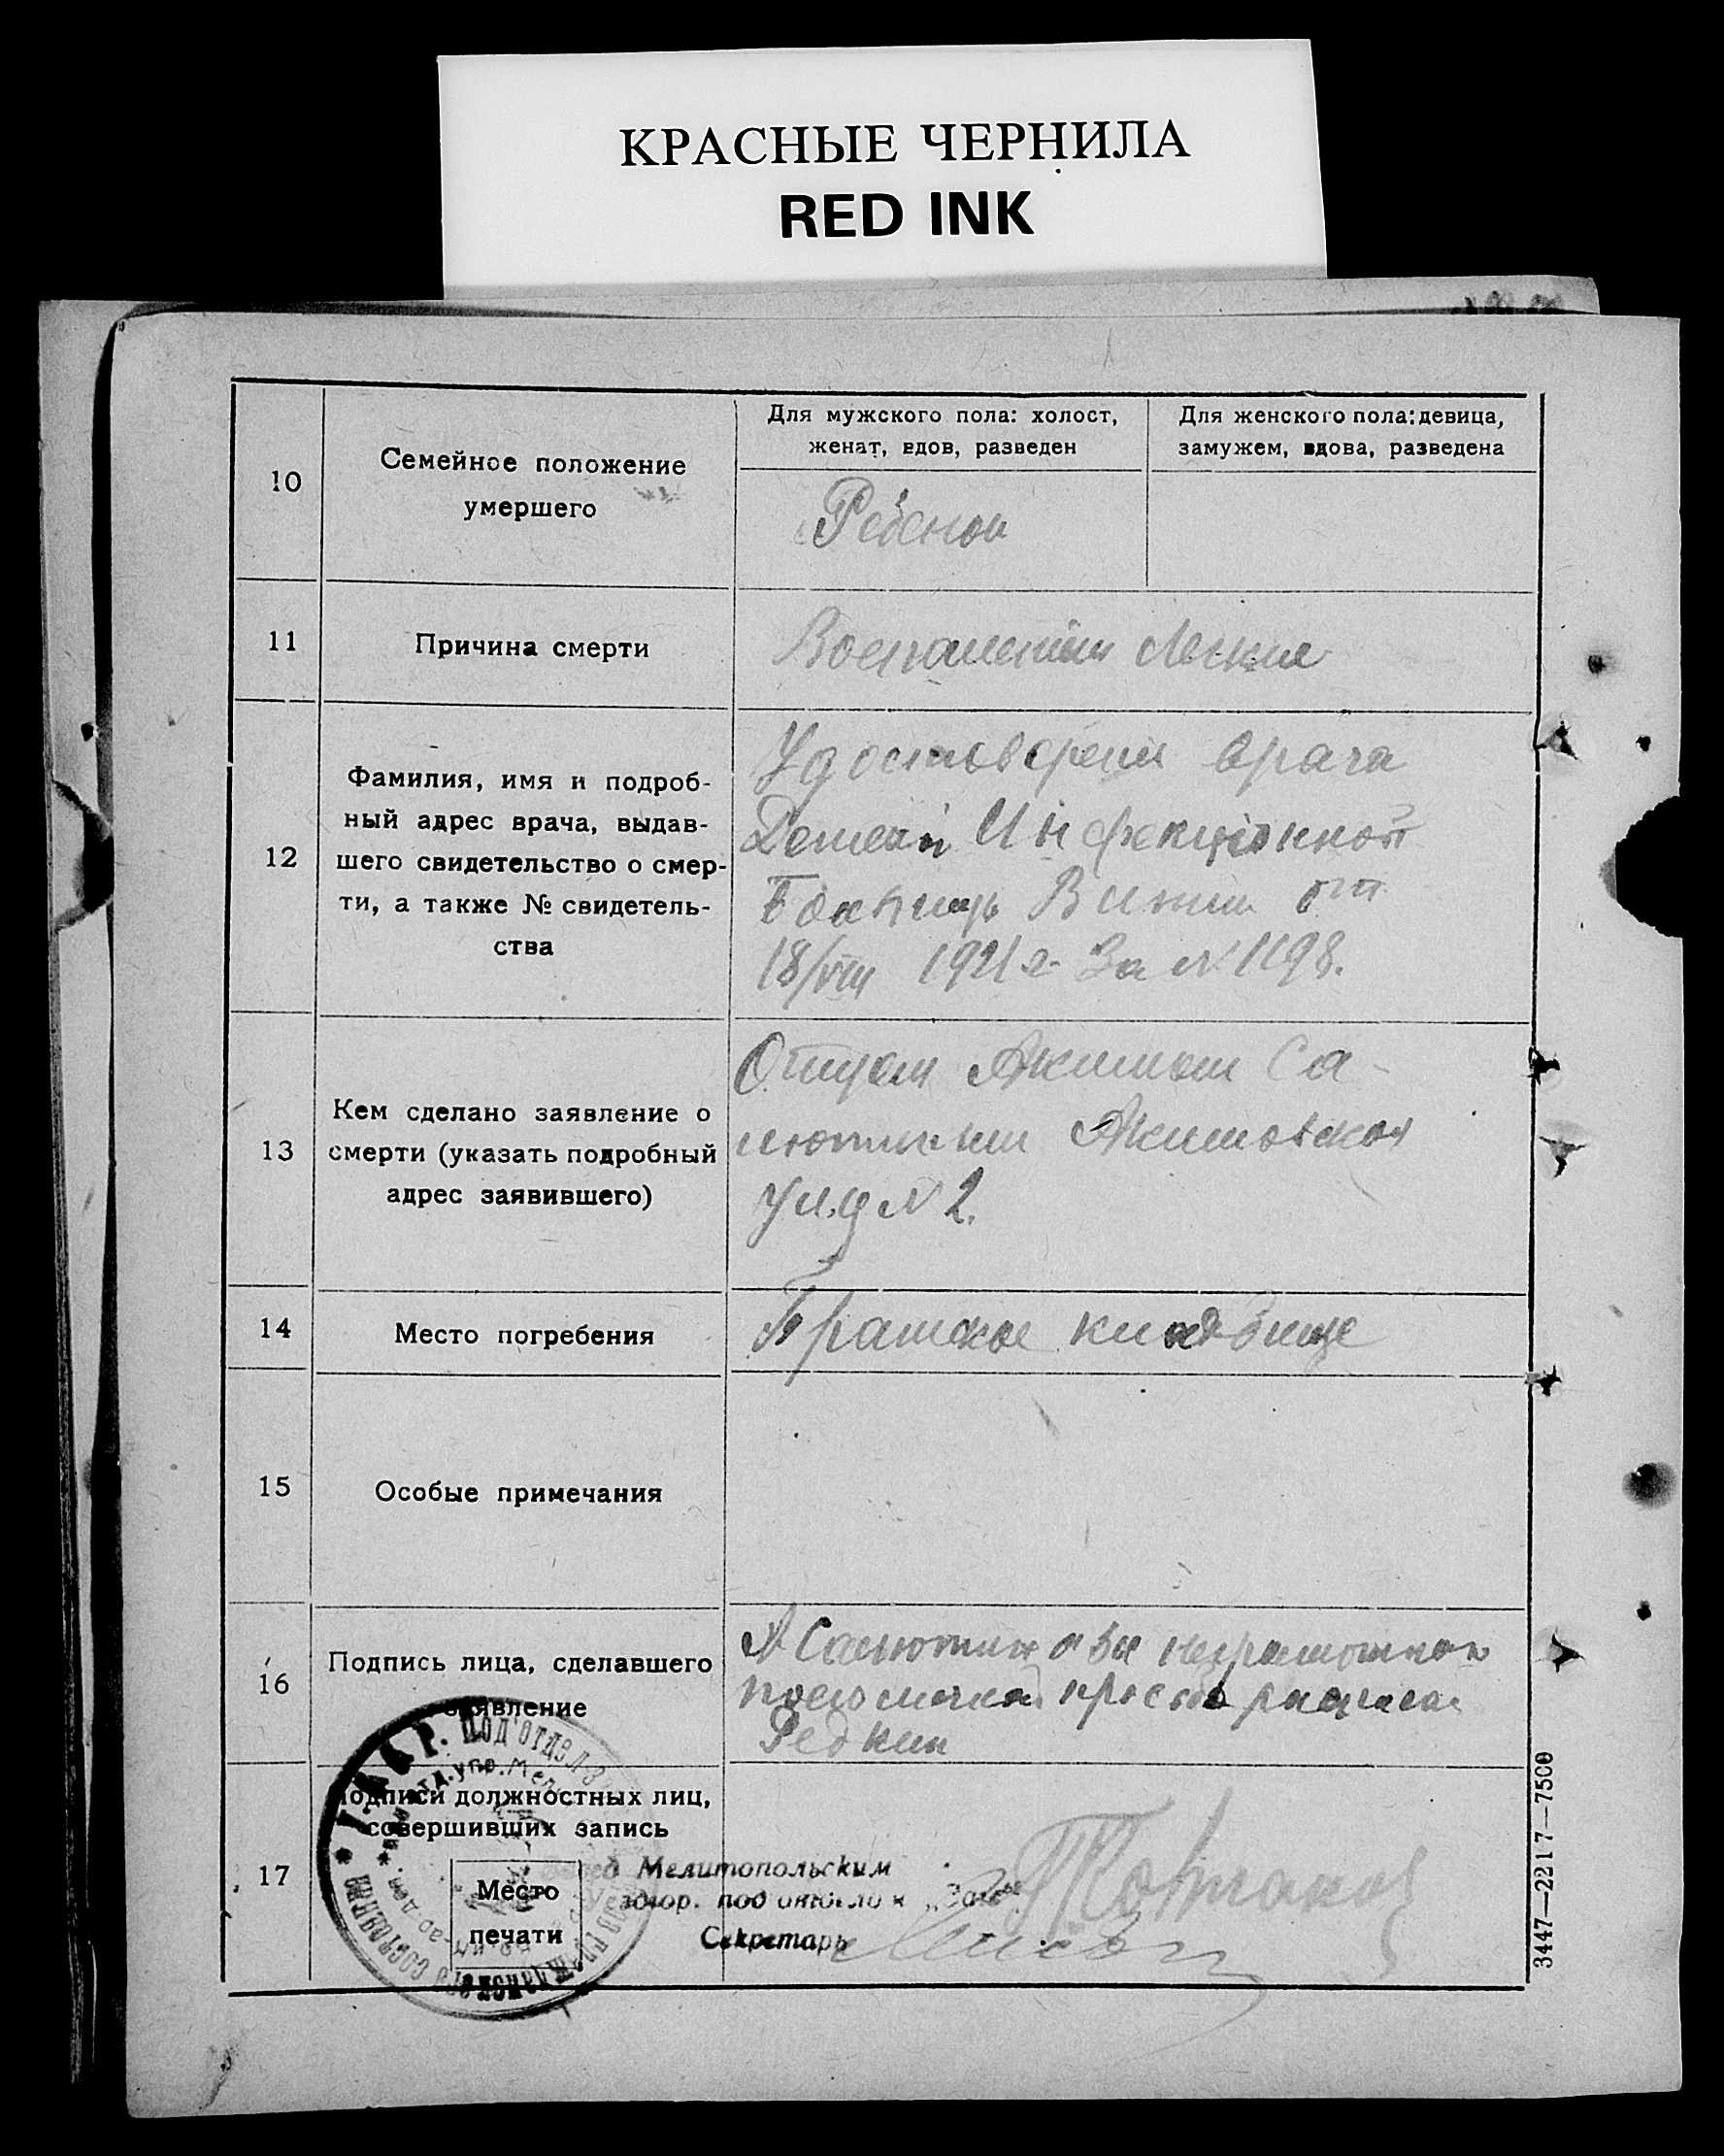 КРАСНЫЕ ЧЕРНИЛА
RED INK
10
Семейное положение
умершего
Для мужского пола: холост,
женат, вдов, разведен
Для женского пола: девица,
замужем, вдова, разведена
Ребенок
11
Причина смерти
Воспаление Легких
12
Фамилия, имя и подроб-
ный адрес врача, выдав-
шего свидетельство о смер-
ти, а также № свидетель-
ства
Удостоверения врача
Детской Инфекционной
от
18/VIII 1921 г. За N 1198.
13
Кем сделано заявление о
смерти (указать подробный
адрес заявившего)
Отцем Акимом Са-
мютиным Акимовская
Ул. д N 2.
14
Место погребения
Братское кладбище
15
Особые примечания
16
Подпись лица, сделавшего
заявление
А Самютин а за неграмотного
по его личной просьбе расписался
Редкин
17
Подписи должностных лиц,
совершивших запись
Место
печати
Мелитопольским
Секретарь
Под'отдел
3447—2217—7500